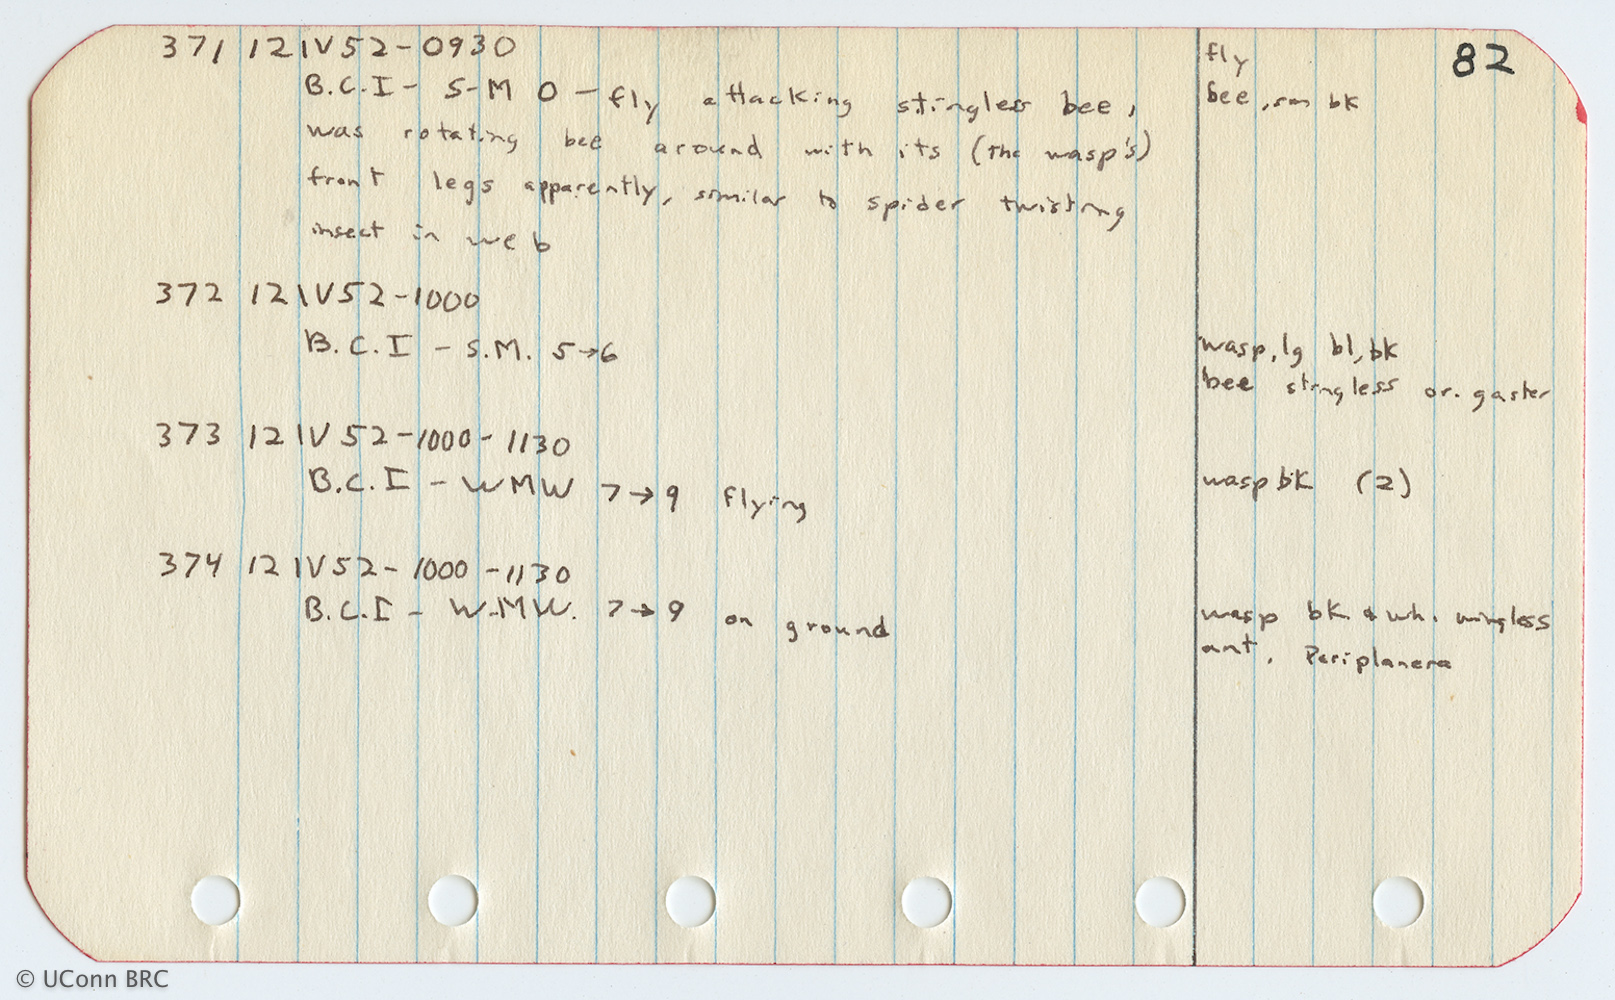 82
371 12IV52-0930
fly
B.C.I - S-M 0 - fly attacking stingless bee,
bee, sm bk
was rotating bee around with its (the wasp's)
front legs apparently, similar to spider twisting
insect in web
372 12IV52-1000
B.C.I - S.M. 5→6
wasp, lg bl, bk
bee stingless or. gaster
373 12IV52-1000-1130
B.C.I - WMW 7→9 flying
wasp bk (2)
374 12IV52-1000-1130
B.C.I - W-MW. 7→9 on ground
wasp bk & wh. wingless
ant. Periplanera
© UConn BRC